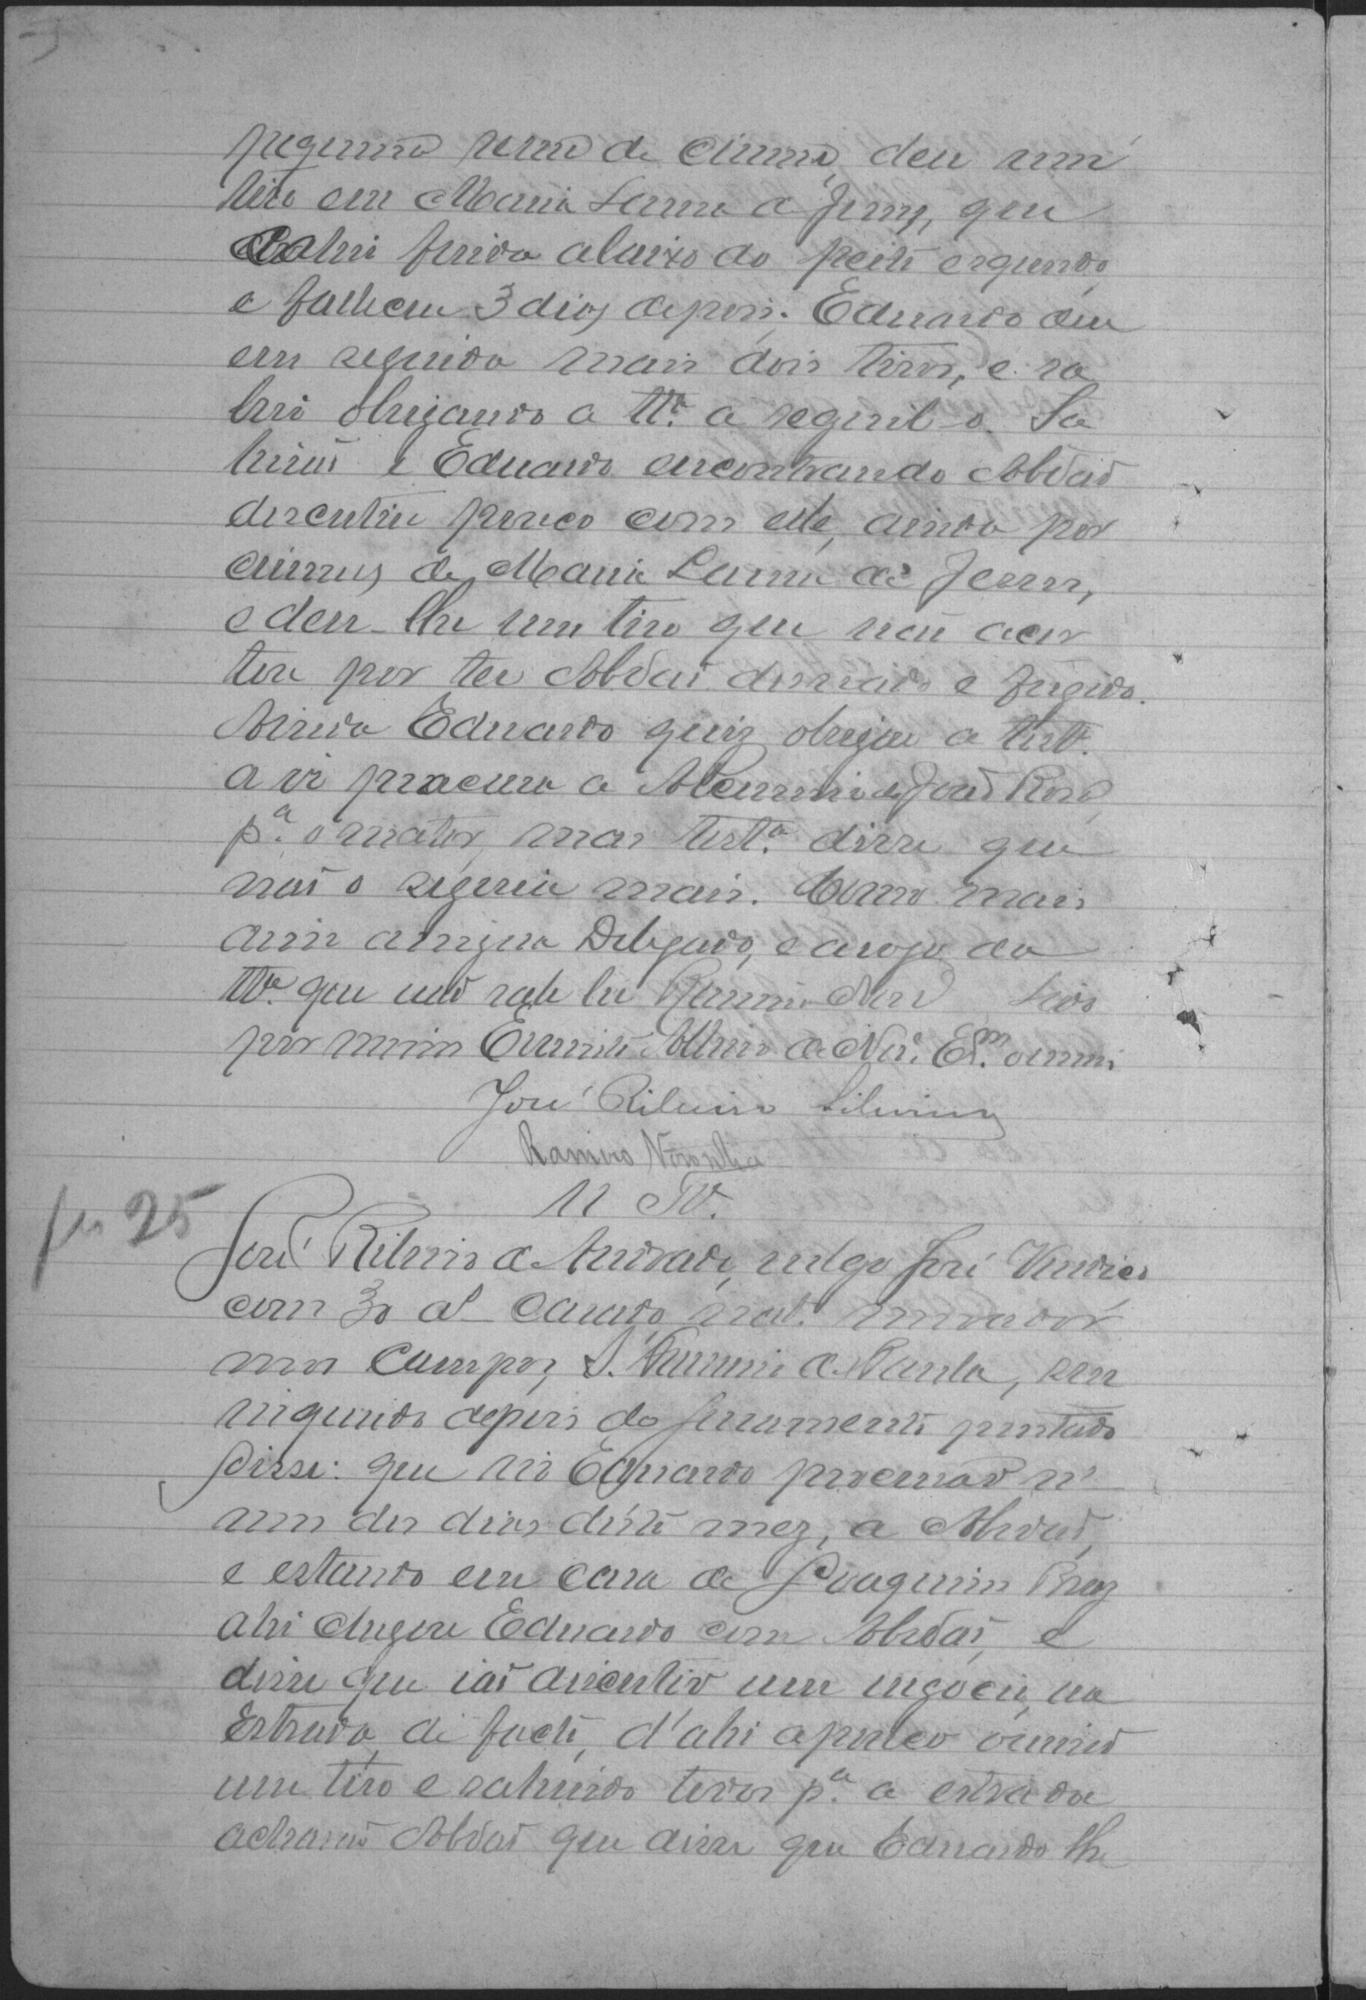 pequena scena de ciume, deu um
tiro em Maria Laura de Jesus, que
cahiu ferida abaixo do peito esquerdo,
e falleceu 3 dias depois. Eduardo deu
em seguida mais dois tiros, e sa
hiu obrigando a Tta. a seguil-o. Sa
hirão e Eduardo encontrando Abdão
discutiu pouco com este, ainda por
ciumes de Maria Laura de Jesus,
e deu-lhe um tiro que não acer
tou por ter Abdão desviado e fugido.
Ainda Eduardo quiz obrigar a testa.
a ir procurar a João Rosa,
pa. o matar, mas testa. disse que
não o seguia mais. Como mais
Delegado, e a rogo da
Tta. que não sabe ler Ramiro Lido
por mim de Em. o escrevi
José Ribeiro Silveira
Ramiro Noronha
11 Tta.
fls 25
José Ribeiro de Andrade, vulgo José
com 30 as. casado, nal. morador
nos Campos, S. Francisco de Paula, sem
impedido depois do juramento prestado
disse: que viu Eduardo procurar n'
um dos dias deste mez, a Abdão,
e estando em casa de Joaquim Braz
ahi chegou Eduardo com Abdão, e
disse que ião discutir um negocio, na
Estrada, de facto, d'ahi a pouco ouvirão
um tiro e sahindo todos pa. a estrada
acharão Abdão que disse que Eduardo lhe